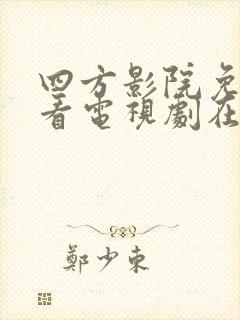 四方影院免
看電視劇在
鄭少東